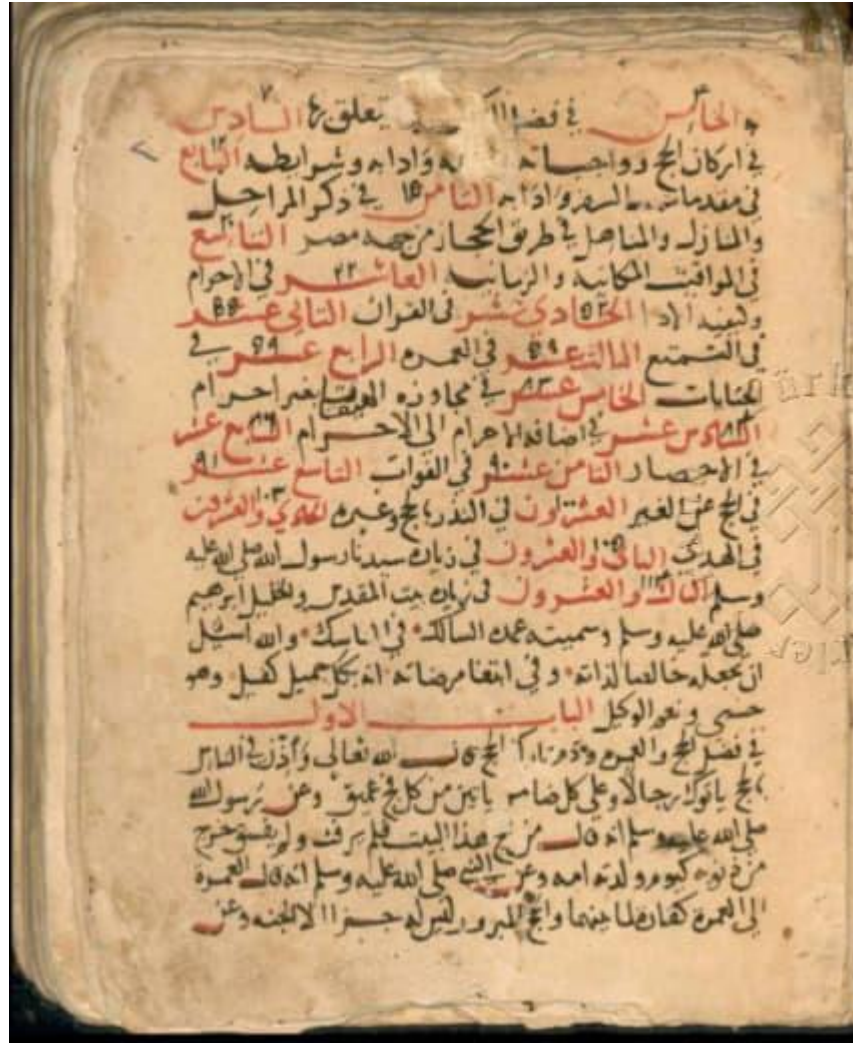 به الخامس في فضل يتعلق بها السادس
في اركان الحج وواجباته وادابه وشرايطه السابع
في مقدمات السفر وادابه الثامن في ذكر المراحل
والمنازل والمناهل في طريق الحجاز من جهه مصر التاسع
في المواقيت المكانيه والزمانيه العاشر في الاحرام
وكيفيه الحادي عشر في القران الثاني عشر
في التمتع الثالث عشر في العمره الرابع عشر في
الجنايات الخامس عشر في مجاوزه الميقات بغير احرام
السادس عشر في اضافه الاحرام الي الاحرام السابع عشر
في الاحصار الثامن عشر في الفوات التاسع عشر
في الحج عن الغير العشرون في النذر بالحج وغيره الحادي والعشرون
في الهدي الثاني والعشرون في زياره سيدنا رسول الله صلي الله عليه
وسلم الثالث والعشرون في زياره بيت المقدس والخليل ابرهيم
صلي الله عليه وسلم وسميته عمده السالك في المناسك والله اسئل
ان يجعله خالصا لذاته وفي ابتغا مرضاته انه بكل جميل كفيل وهو
حسبي ونعم الوكيل الباب الاول
في فضل الحج والعمره الحج قال الله تعالي وأذن في الناس
بالحج ياتوك رجالا وعلي كل ضامر ياتين من كل فج عميق وعن رسول الله
صلي الله عليه وسلم انه قال من حج هذا البيت فلم يرفث ولم يفسق خرج
من ذنوبه كيوم ولدته امه وعن النبي صلي الله عليه وسلم انه قال العمرة
الي العمرة كفارة لما بينهما والحج المبرور ليس له جزا الا الجنه وعن